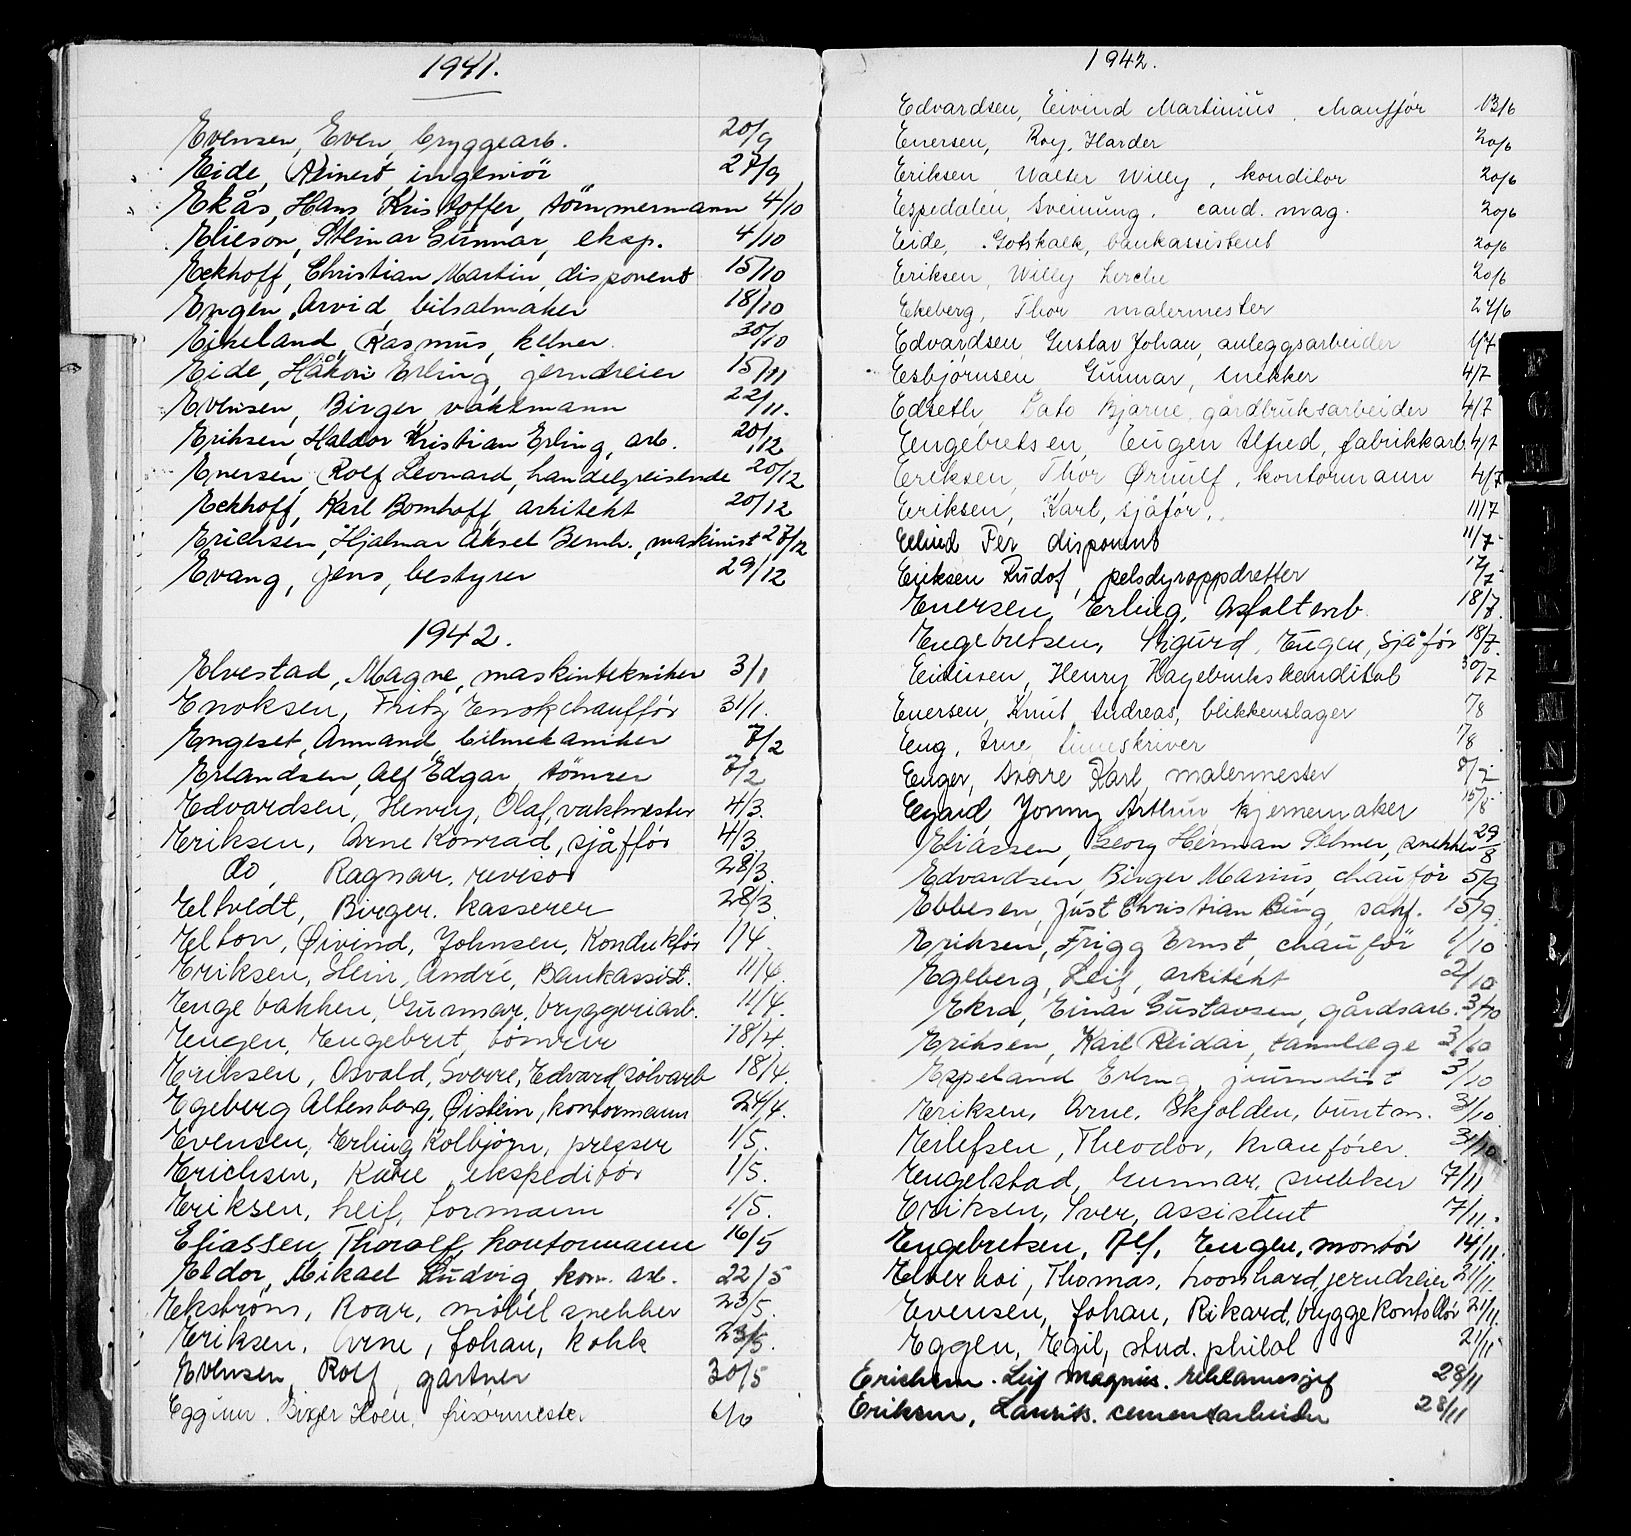 1941.
Evensen, Even, bryggearb. 20/9
Eide, Reinert ingeniör 27/9
Ekås, Hans Kristoffer, tömmermann 4/10
Elieson, Gunnar, eksp. 4/10
Eckhoff, Christian Martin, disponent 15/10
Engen, Arvid, bilsalmaker 18/10
Eikeland, Rasmus, kelner. 30/10
Eide, Håkon Erling, jerndreier 15/11
Evensen, Birger, vaktmann 22/11.
Eriksen, Haldor Kristian Erling, arb. 20/12
Enersen, Rolf Leonard, handelsreisende 20/12
Eckhoff, Karl Bomhoff, arkitekt 20/12
Erichsen, Hjalmar Aksel Bernh., maskinist 27/12
Evang, Jens, bestyrer 29/12
1942.
Elvestad, Magne, maskintekniker 3/1
Enoksen, Fritz Enok chaufför 31/1.
Engeset, Armand, bilmekaniker 7/2
Erlandsen, Alf Edgar, tömrer 7/2
Edvardsen, Henry, Olaf, vaktmester 4/3.
Eriksen, Arne Konrad, sjåffør 4/3.
do, Ragnar. revisor 28/3.
Eltvedt, Birger. kasserer 28/3.
Elton, Øivind, Johnsen, Konduktför 1/4.
Eriksen, Stein, André, Bankassist. 11/4.
Engebakken, Gunnar, bryggeriarb. 11/4.
Engen, Engebret, tömrer 18/4.
Eriksen, Osvald, Sverre, Edvard, sølvarb 18/4.
Egeberg Altenborg, Øistein, kontormann 24/4.
Evensen, Erling Kolbjørn, presser 1/5.
Erichsen, Kåre, ekspeditör 1/5.
Eriksen, Leif, formann 1/5.
Eliassen, Thoralf, kontormann 16/5
Eldor, Mikael Ludvig, kom. arb. 22/5
Ekstrøm, Roar, möbelsnekker 23/5.
Eriksen, Arne, Johan, kokk 23/5.
Evensen, Rolf, gartner 30/5
Birger Hoen, frisörmester 6/6
1942.
Edvardsen, Eivind Martinius, chauffør 13/6
Enersen, Roy, Harder 20/6
Eriksen, Walter Willy, konditor 20/6
Espedalen, Sveinung. cand. mag. 20/6
Eide, Gotskalk, bankassistent 20/6
Eriksen, Willy Lerche 20/6
Ekeberg, Thor malermester 24/6
Edvardsen Gustav Johan, anleggsarbeider 1/7
Esbjörnsen Gunnar, snekker 4/7
Edseth Cato Bjarne, gårdbruksarbeider 4/7
Engebretsen, Eugen Alfred, fabrikkarb. 4/7
Eriksen, Thor Ørnulf, kontormann 4/7
Eriksen, Karl, sjåför. 11/7
Per disponent 11/7
Eriksen Rudof, pelsdyroppdretter 17/7
Enersen, Erling, Asfaltarb. 18/7.
Engebretsen, Sigurd, Eugen, sjåför 18/7.
Henry Hagebrukskandidat 30/7
Enersen, Knut Andreas, blikkenslager 1/8
Eng, Arne, timeskriver 1/8
Enger, Sverre Karl, malermester
Egard, Jonny Arthur kjernemaker 15/8
Eliassen, Georg Herman Selmer, snekker 29/8
Edvardsen, Birger Marius, chauför 5/9
Ebbesen, Just Christian Bing, sakf. 15/9.
Eriksen, Frigg Ernst, chauför 1/10
Egeberg, Leif, arkitekt 2/10
Ekra, Einar Gustavsen, gårdsarb. 3/10
Eriksen, Karl Reidar, tannlæge 3/10
Eppeland, Erling, journalist 3/10
Eriksen, Arne, Skjolden, buntm. 31/10.
Erlefsen, Theodor, kranfører. 31/10.
Engelstad, Gunnar, snekker 7/11
Eriksen, Iver, assistent 7/11.
Engebretsen, Alf, Eugen, montör 14/11.
Elverhoi, Thomas, Leonhard, jerndreier 21/11.
Evensen, Johan, Rikard, bryggekontollör 21/11.
Eggen, Egil, stud. philol 21/11
Erichsen. Leif Magnus. reklamesjef 28/11
Eriksen, Laurits. cementarbeider 28/11
F
G
H
I
J
K
L
M
N
O
P
R